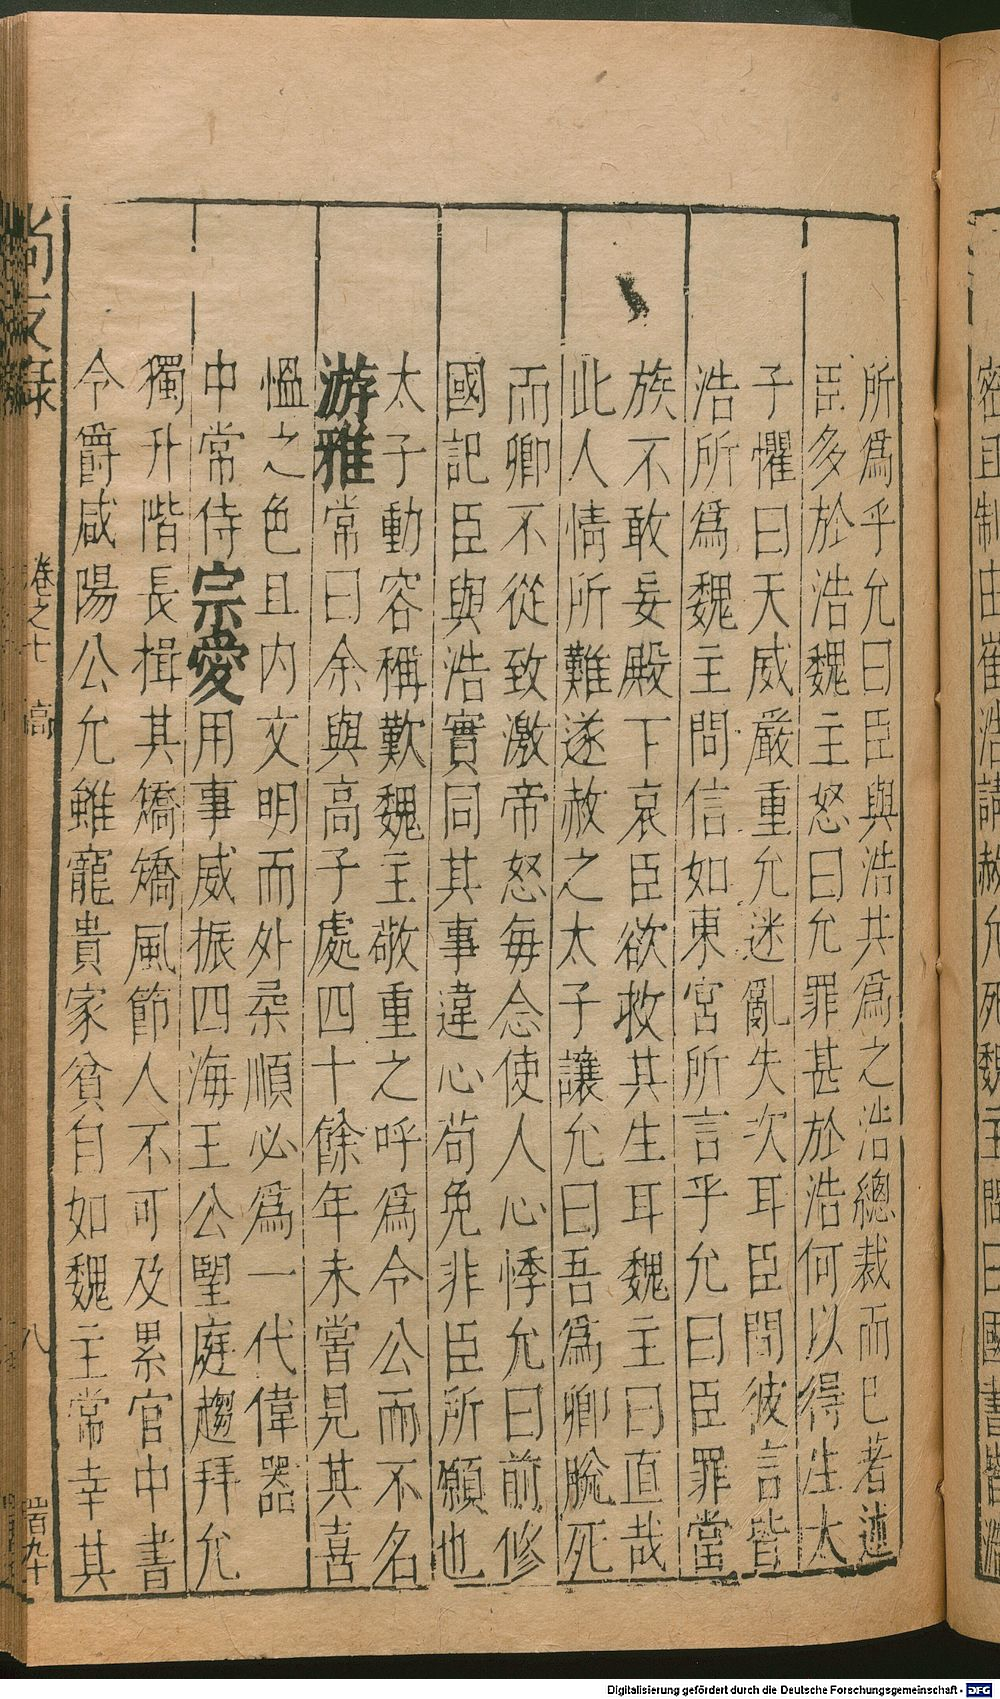 密且制由崔浩請赦允死魏主問曰國書皆浩
所爲乎允曰臣與浩共爲之浩總裁而已著述
臣多於浩魏主怒曰允罪甚於浩何以得生太
子懼曰天威嚴重允迷亂失次耳臣問彼言皆
浩所爲魏主問信如東宮所言乎允曰臣罪當
族不敢妄殿下哀臣欲救其生耳魏主曰直哉
此人情所難遂赦之太子讓允曰吾爲卿脫死
而卿不從致激帝怒每念使人心悸允曰前修
國記臣與浩實同其事違心苟免非臣所願也
太子動容稱歎魏主敬重之呼爲令公而不名
游雅常曰余與高子處四十餘年未嘗見其喜
慍之色且内文明而外柔順必爲一代偉器
中常侍宗愛用事威振四海王公望庭趨拜允
獨升階長揖其矯矯風節人不可及累官中書
令爵咸陽公允雖寵貴家貧自如魏主常幸其
尚友錄 卷之七 高 八
Digitalisierung gefördert durch die Deutsche Forschungsgemeinschaft - DFG